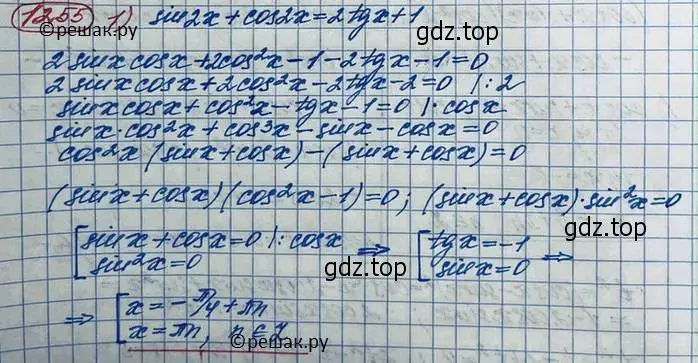 1255 1) sin2x + cos2x = 2tgx + 1
©решак.ру
2 sinx cosx + 2cos²x - 1 - 2tgx - 1 = 0
2 sinx cosx + 2cos²x - 2tgx - 2 = 0 |:2
sinx cosx + cos²x - tgx - 1 = 0 |· cosx
sinx·cos²x + cos³x - sinx - cosx = 0
cos²x (sinx + cosx) - (sinx + cosx) = 0
gdz.top
(sinx + cosx)(cos²x - 1) = 0; (sinx + cosx)·sin²x = 0
[sinx + cosx = 0 |: cosx ⇒ [tgx = -1 ⇒
sin²x = 0 sinx = 0
gdz.top
gdz.top
⇒ [x = -π/4 + πn
x = πn, n ∈ Z
©решак.ру